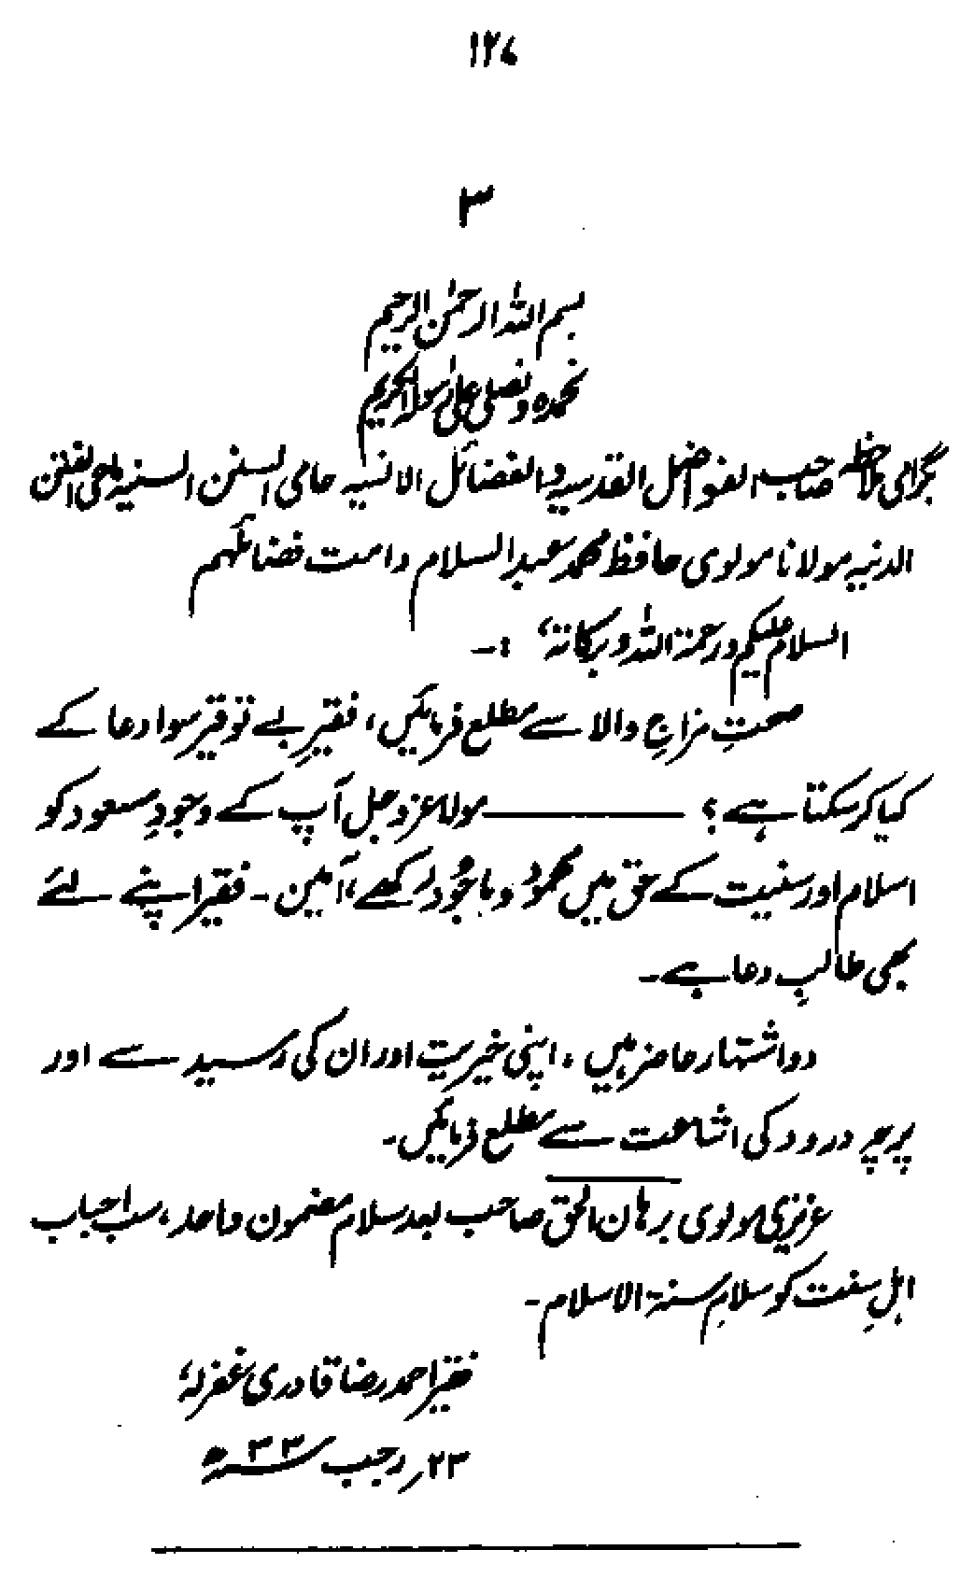 ۱۲۷
۳
بسم اللہ الرحمٰن الرحیم
نحمدہ ونصلی علیٰ رسولہ الکریم
بگرامی ملاحظہ صاحب الفواضل القدسیہ والفضائل الانسیہ حامی السنن السنیہ ماحی الفتن
الدنیہ مولانا مولوی حافظ محمد عبدالسلام دامت فضائلہم
السلام علیکم ورحمۃ اللہ وبرکاتہٗ :۔
صحتِ مزاجِ والا سے مطلع فرمائیں، فقیرِ بے توقیر سوا دعا کے
کیا کرسکتا ہے؟ ——— مولا عزوجل آپ کے وجودِ مسعود کو
اسلام اور سنیت کے حق میں محمود و ماجُود رکھے، آمین۔ فقیر اپنے لئے
بھی طالبِ دعا ہے۔
دو اشتہار حاضر ہیں، اپنی خیریت اور ان کی رسید سے اور
پرچہ درود کی اشاعت سے مطلع فرمائیں۔
عزیزی مولوی برہان الحق صاحب بعد سلام مضمون واحد، سب احباب
اہلِ سنت کو سلامِ سنۃ الاسلام۔
فقیر احمد رضا قادری غفرلہٗ
۲۳؍ رجب ۳۳ھ